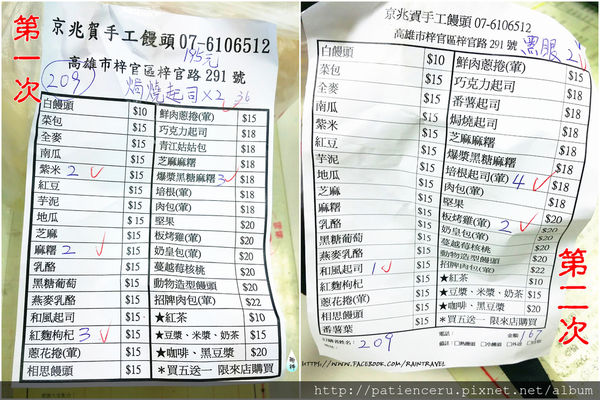 第一次
京兆賀手工饅頭 07-6106512
195元
高雄市梓官區梓官路 291 號
209 焗燒起司×2 36
白饅頭 $10 鮮肉蔥捲(葷) $15
菜包 $15 巧克力起司 $18
全麥 $15 青江姑姑包 $18
南瓜 $15 芝麻麻糬 $18
紫米 2 $15 爆漿黑糖麻糬 3 $18
紅豆 $15 培根(葷) $15
芋泥 $15 肉包(葷) $15
地瓜 $15 堅果 $20
芝麻 $15 板烤雞(葷) $20
麻糬 2 $15 奶皇包(葷) $20
乳酪 $15 蔓越莓核桃 $20
黑糖葡萄 $15 動物造型饅頭 $20
燕麥乳酪 $15 招牌肉包(葷) $22
和風起司 $15 ★紅茶 $10
紅麴枸杞 3 $15 ★豆漿、米漿、奶茶 $15
蔥花捲(葷) $15 ★咖啡、黑豆漿 $20
相思饅頭 $15 *買五送一 限來店購買
第二次
京兆賀手工饅頭 07-6106512
高雄市梓官區梓官路 291 號
白饅頭 $10 鮮肉蔥捲(葷) $15
菜包 $15 巧克力起司 $18
全麥 $15 番薯起司 $18
南瓜 $15 焗燒起司 $18
紫米 $15 芝麻麻糬 $18
紅豆 $15 爆漿黑糖麻糬 $18
芋泥 $15 培根起司(葷) 4 $18
地瓜 $15 肉包(葷) $15
芝麻 $15 堅果 $20
麻糬 $15 板烤雞(葷) 2 $20
乳酪 $15 奶皇包(葷) $20
黑糖葡萄 $15 蔓越莓核桃 $20
燕麥乳酪 $15 動物造型饅頭 $20
和風起司 1 $15 招牌肉包(葷)
紅麴枸杞 $15 ★紅茶
蔥花捲(葷) $15 ★豆漿、米漿、奶茶 $15
相思饅頭 $15 ★咖啡、黑豆漿 $20
番薯葉 $15 *買五送一 限來店購買
209 電話: 金額: 167
HTTPS://WWW.FACEBOOK.COM/RAINTRAVEL
http://patienceru.pixnet.net/album